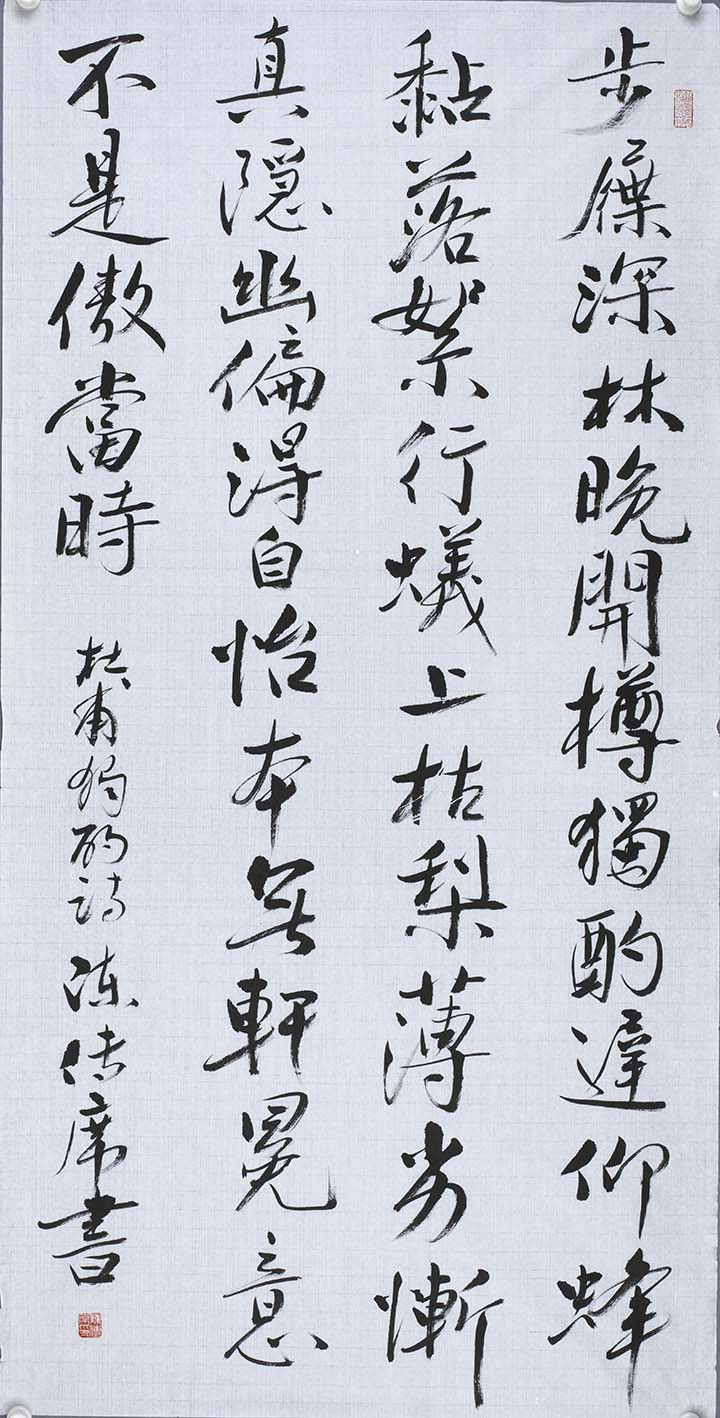 步屧深林晚開樽獨酌遲仰蜂
黏落絮行蟻上枯梨薄劣慚
真隱幽偏得自怡本無軒冕意
不是傲當時
杜甫獨酌詩 陳传席書